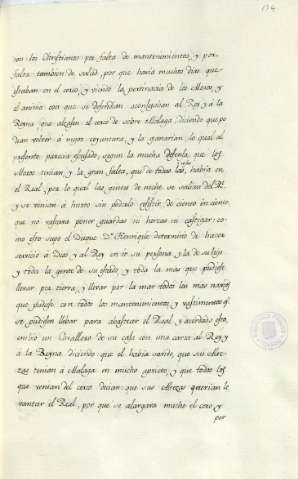 174
con los Christianos por falta de mantenimientos, y por
falta tambien de salud, por que havia muchos dias que
estaban en el cerco, y viendo la pertinacia de los Moros, y
el animo con que se defendian aconsejaban al Rey y à la
Reyna que alzasen el cerco de sobre Malaga, diciendo que po
dian volver à mejor coyuntura, y la ganarian, lo qual al
presente parecia escusado, segun la mucha defensa que los
Moros tenian y la gran falta, que de todas las cosas, habia en
el Real, por lo qual las gentes de noche se salian del Rl.
y se venian à hurto sin podello resistir, de ciento en ciento,
que no bastava poner guardas ni horcas ni castigar: co
mo esto supo el Duque Dn. Henrique determinó de hacer
servicio à Dios y al Rey en ir su persona, y la de su hijo
y toda la gente de su Estado, y toda la mas que pudiese
llevar por tierra, y llevar por la mar todos los mas navios
que pudiese con todos los mantenimientos y vastimentos qe.
se pudiesen llevar para abastecer el Real, y acordado esto,
embio un Cavallero de su casa con una carta al Rey y
à la Reyna diciendo que el habia savido, que sus Alte-
zas tenian à Malaga en mucho aprieto, y que todos los
que venian del cerco dician que sus Altezas querian le
vantar el Real, por que se alargara mucho el cerco, y
por